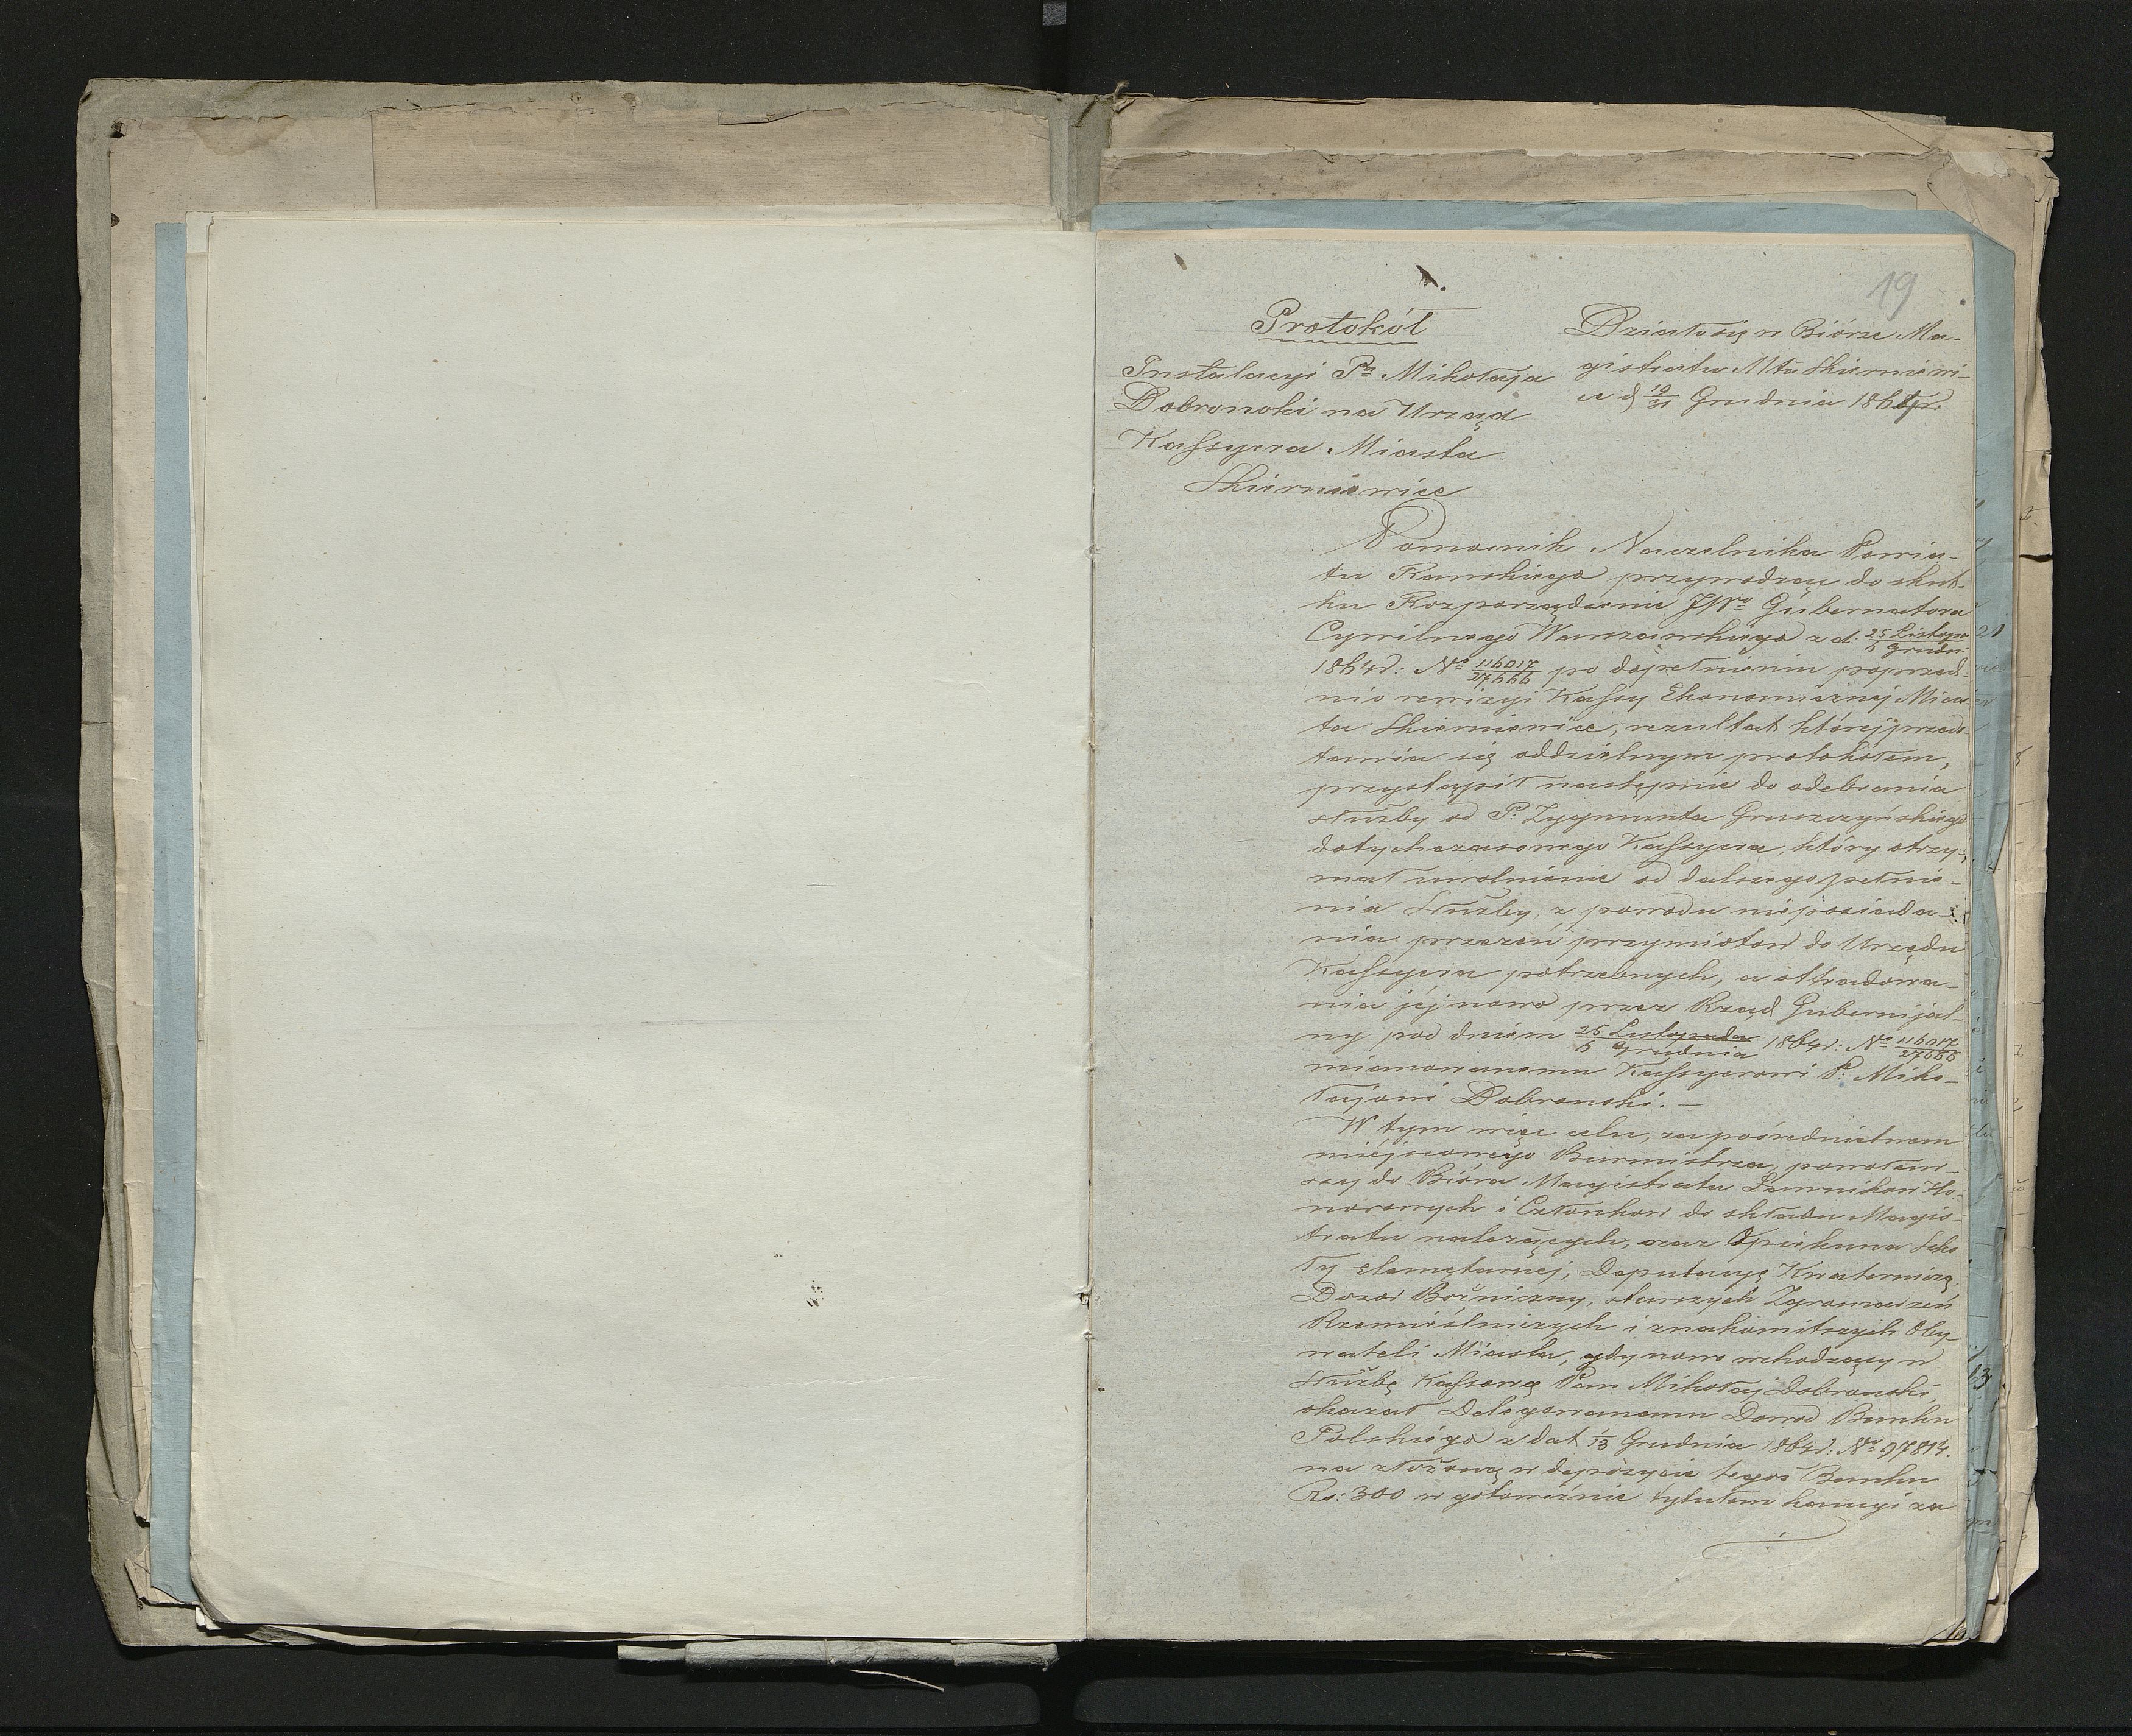 19
Protokół
Instalacyi Pa Mikołaja
Dobronoki na Urząd
Kassyera Miasta
Skierniewice
Działo się w Biórze Ma-
gistratu Mta Skierniewi-
ce d 19/31 Grudnia 1864 r.
Pomocnik Naczelnika Powia-
tu Rawskiego przywodząc do skut-
ku Rozporządzenie JWo Gubernatora
Cywilnego Warszawskiego z d: 25 Listopa/6 Grudn:
1864 r: No 116017/27666 po dopełnieniu poprzed-
nio rewizyi Kassy Ekonomicznej Mias-
ta Skierniewice, rezultat której przeds-
tawia się oddzielnym protokółem,
przystąpił następnie do odebrania
służby od P. Zygmunta Gruszczyńskiego
dotychczasowego Kassyera, który otrzy-
mał uwolnienie od dalszego pełnie-
nia służby, z powodu nieposiada-
nia przezeń przymiotów do Urzędu
Kassyera potrzebnych, a ottradowa-
nia jéj nowo przez Rząd Gubernijal-
ny pod dniem 25 Listopada/6 Grudnia 1864 r: No 116017/27666
mianowanemu Kassyerowi P. Miko-
łajowi Dobronoki. —
W tym więc celu, za pośrednictwem
miejscowego Burmistrza, powoław-
szy do Bióra Magistratu Ławników Ho-
norowych i Członków do składu Magis-
tratu należących, oraz Opiekuna Szko
ły Elemętarnej, Deputacyę Kwaterniczą,
Dozór Bóżniczny, starszych Zgromadzeń
Rzemieślniczych i znakomitszych Oby-
wateli Miasta, gdy nowo wchodzący w
służbę Kassową Pan Mikołaj Dobronoki,
okazał Delegowanemu Dowód Banku
Polskiego z dat 1/13 Grudnia 1864 r: No 97814.
na złożoną w depozycie tegoż Banku
Rs: 300 w gotowiźnie tytułem kaucyi za